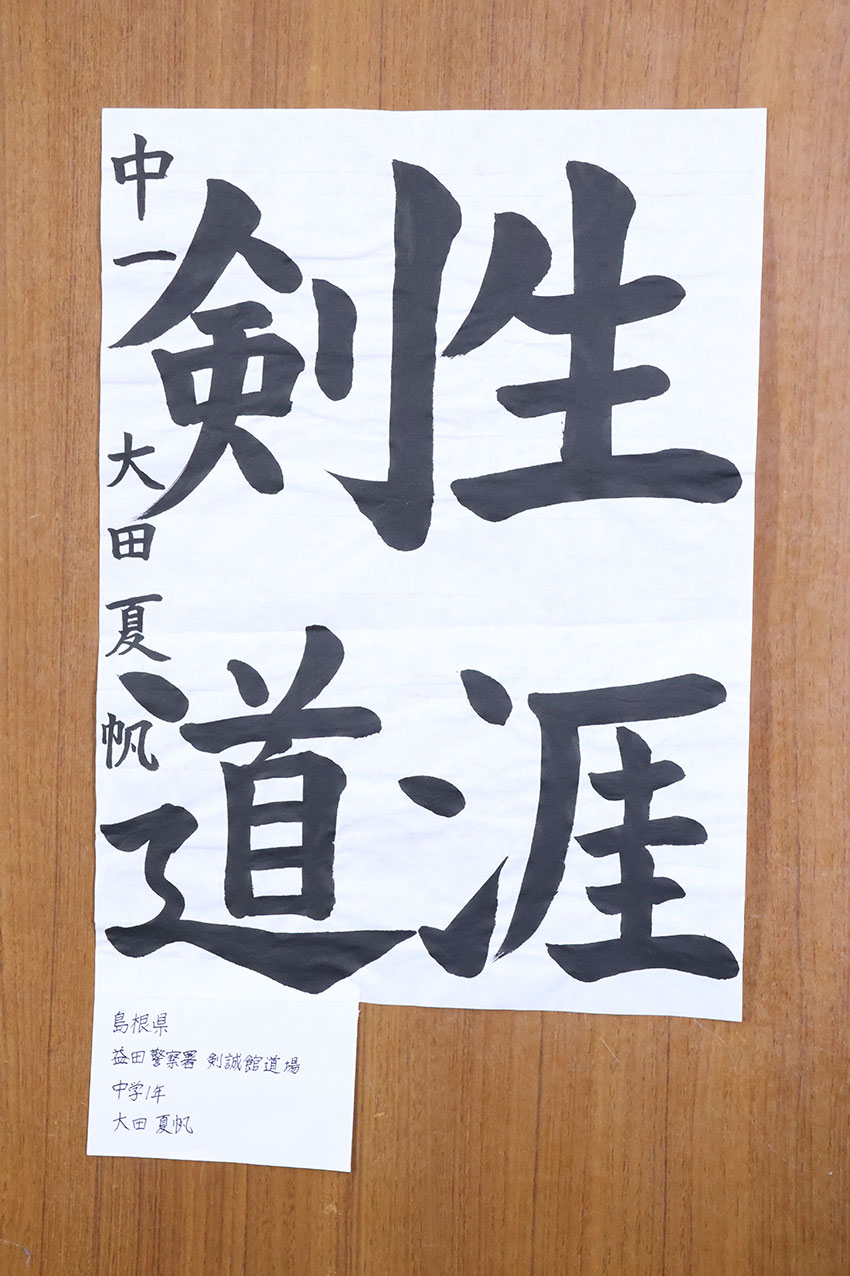 生涯
剣道
中一 大田夏帆
島根県
益田警察署 剣誠館道場
中学1年
大田 夏帆